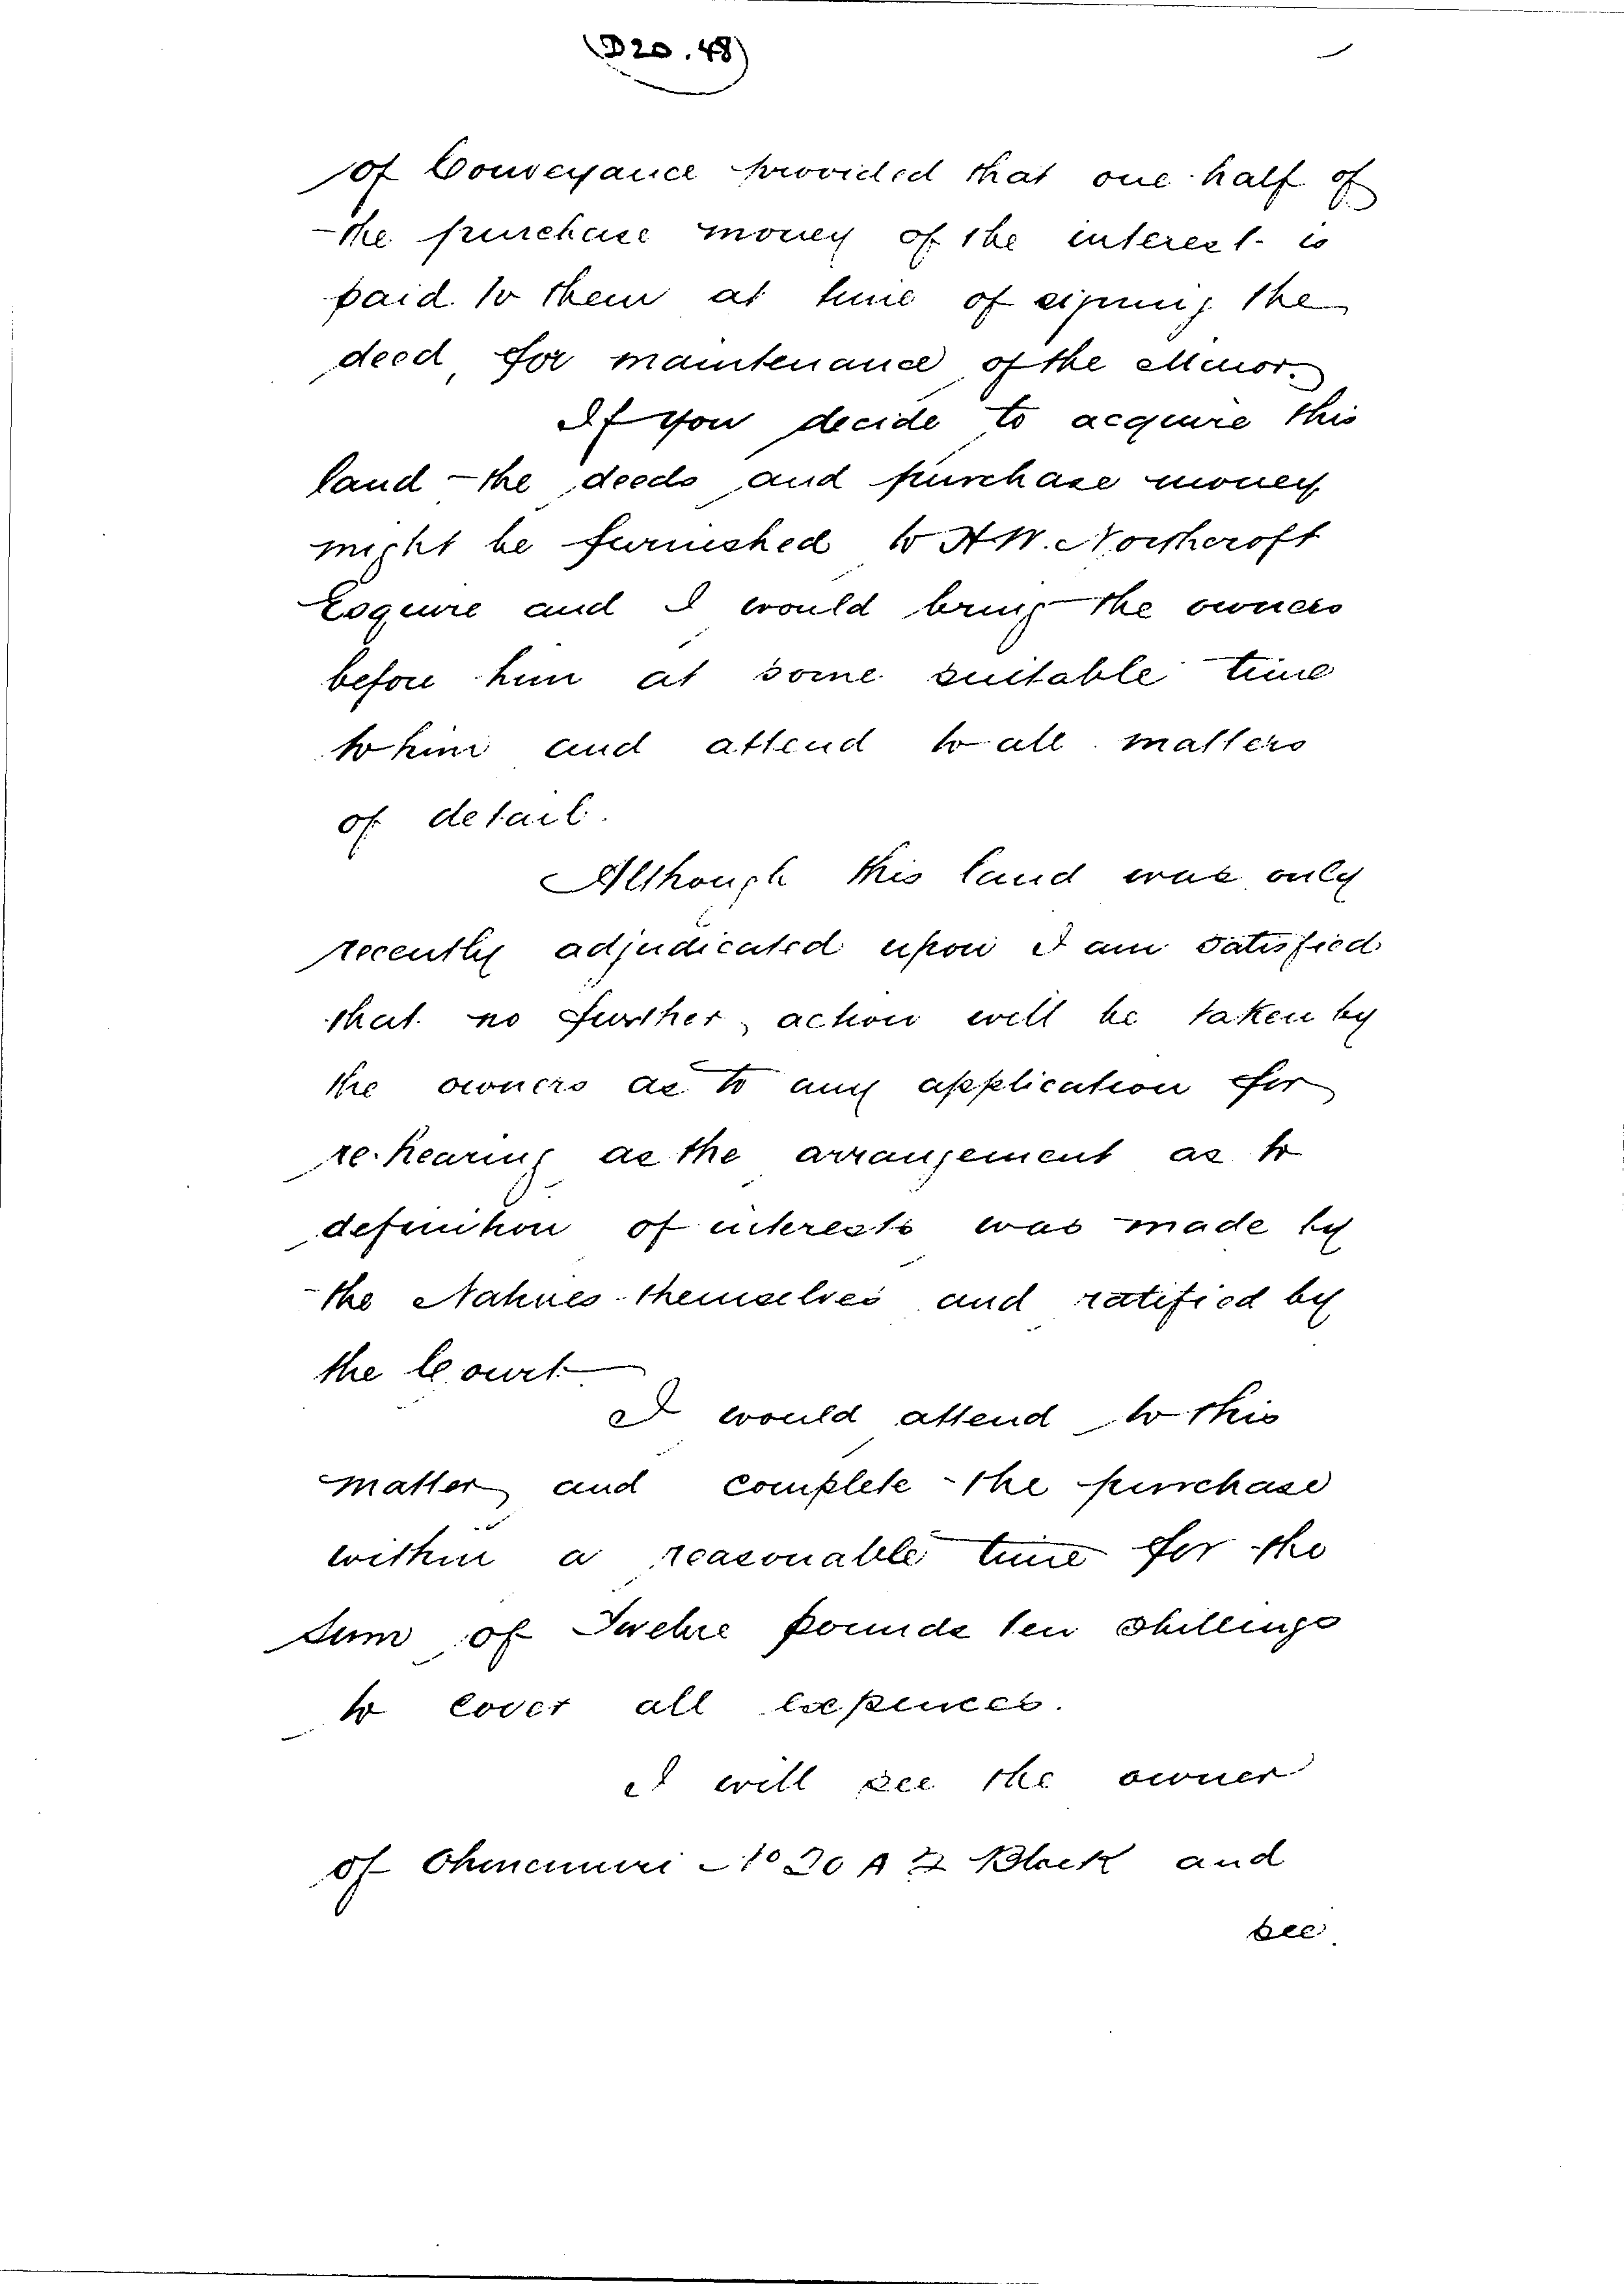 (D20.48)
of Conveyance provided that one half of
the purchase money of the interest is
paid to them at time of signing the
deed for maintenance of the Minor.
If you decide to acquire this
land the deeds and purchase money
might be furnished to H.W. Northcroft
Esquire and I would bring the owners
before him at some suitable time
to him and attend to all matters
of detail.
Although this land was only
recently adjudicated upon I am satisfied
that no further action will be taken by
the owners as to any application for
re-hearing as the arrangement as to
definition of interests was made by
the Natives themselves and ratified by
the Court
I would attend to this
matter and complete the purchase
within a reasonable time for the
sum of Twelve pounds ten shillings
to cover all expenses.
I will see the owner
of Ohinemuri No 20 A 2 Block and
see